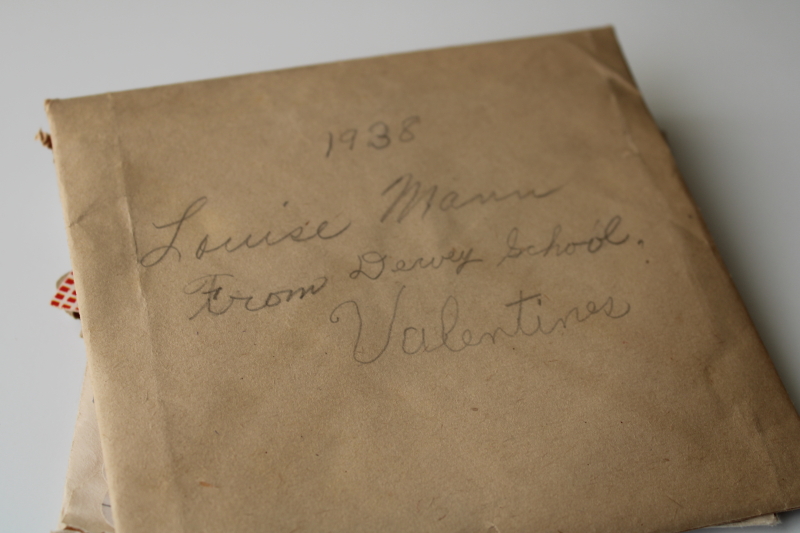 1938
Louise Mann
From Dewey School.
Valentines